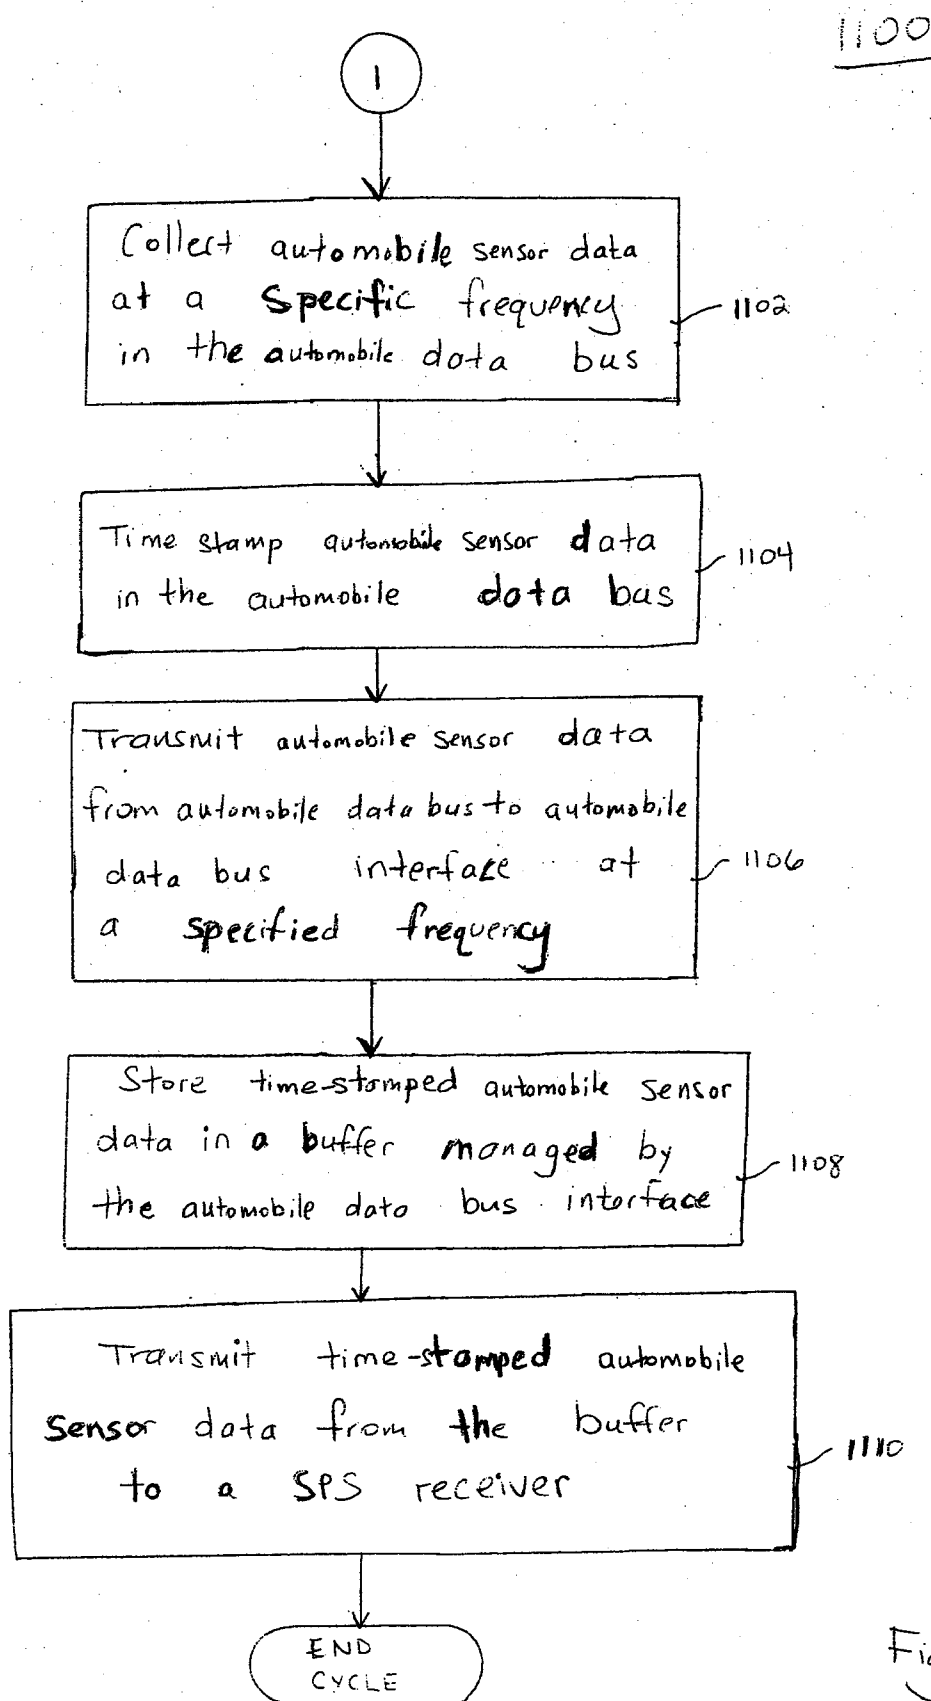 1100
1
Collect automobile sensor data
at a specific frequency
in the automobile data bus
1102
Time stamp automobile sensor data
in the automobile data bus
1104
Transmit automobile sensor data
from automobile data bus to automobile
data bus interface at
a specified frequency
1106
Store time-stamped automobile sensor
data in a buffer managed by
the automobile data bus interface
1108
Transmit time-stamped automobile
sensor data from the buffer
to a SPS receiver
1110
END
CYCLE